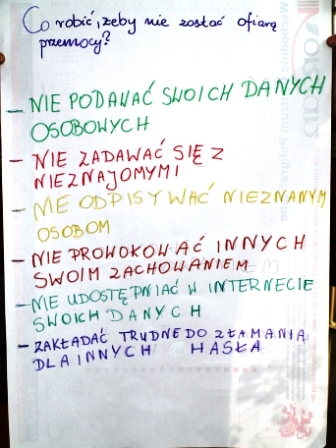 Co robić, żeby nie zostać ofiarą
przemocy?
- NIE PODAWAĆ SWOICH DANYCH
OSOBOWYCH
- NIE ZADAWAĆ SIĘ Z
NIEZNAJOMYMI
- NIE ODPISYWAĆ NIEZNANYM
OSOBOM
- NIE PROWOKOWAĆ INNYCH
SWOIM ZACHOWANIEM
- NIE UDOSTĘPNIAĆ W INTERNECIE
SWOICH DANYCH
- ZAKŁADAĆ TRUDNE DO ZŁAMANIA
DLA INNYCH HASŁA